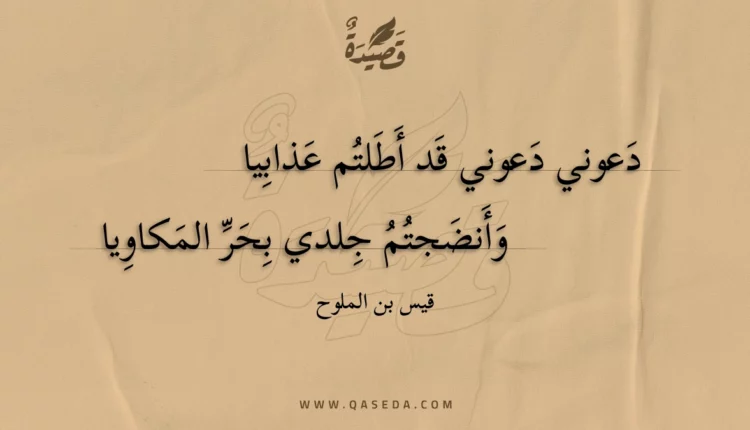 قَصِيدَةٌ
دَعوني دَعوني قَد أَطَلتُم عَذابِيا
وَأَنضَجتُمُ جِلدي بِحَرِّ المَكاوِيا
قيس بن الملوح
WWW.QASEDA.COM